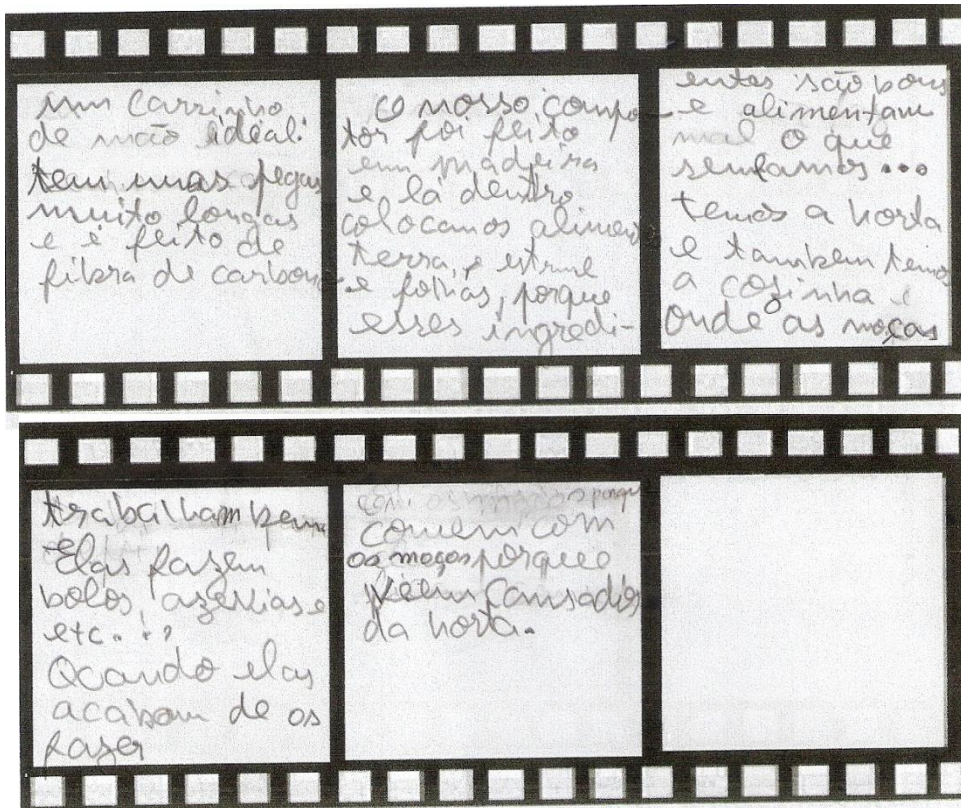 um carrinho
de mão ideal:
tem umas pegas
muito longas
e é feito de
fibra de carbono
O nosso compo-
tor foi feito
em madeira
e lá dentro
colocamos alimen
terra, e estrume
e folhas, porque
esses ingredi-
entes são bons
e alimentam
mal o que
semfamos...
temos a horta
e tambem temos
a cozinha
onde as moças
trabalham bem
Elas fazem
bolos, azevias e
etc...
Qcando elas
acabam de os
fazer
com os moços porque
comem com
os moços porque
vêem cansados
da horta.